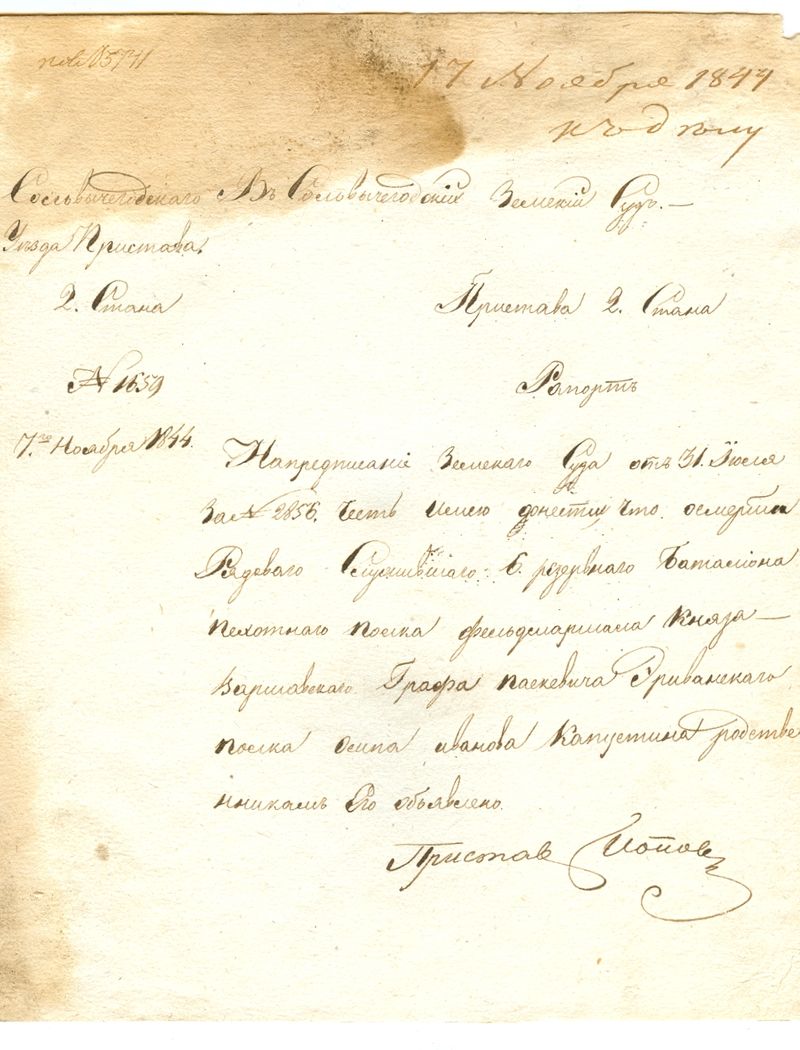 17 Ноября 1844
къ делу
Сольвычегодскаго
Уезда Пристава.
2. Стана
№ 1659
7.го Ноября 1844.
Въ Сольвычегодскій Земскій Судъ.—
Пристава 2. Стана
Рапортъ
Напредписаніе Земскаго Суда отъ 31. Іюля
За № 2856. Честь имею донести что осмерти
Рядоваго Служившаго 6. резервнаго Баталіона
пехотнаго полка фельдмаршала Князя—
Варшавскаго Графа паскевича Эриванскаго
полка осипа иванова Капустина родстве
нникамъ Его объявлено.
Пристав Попов